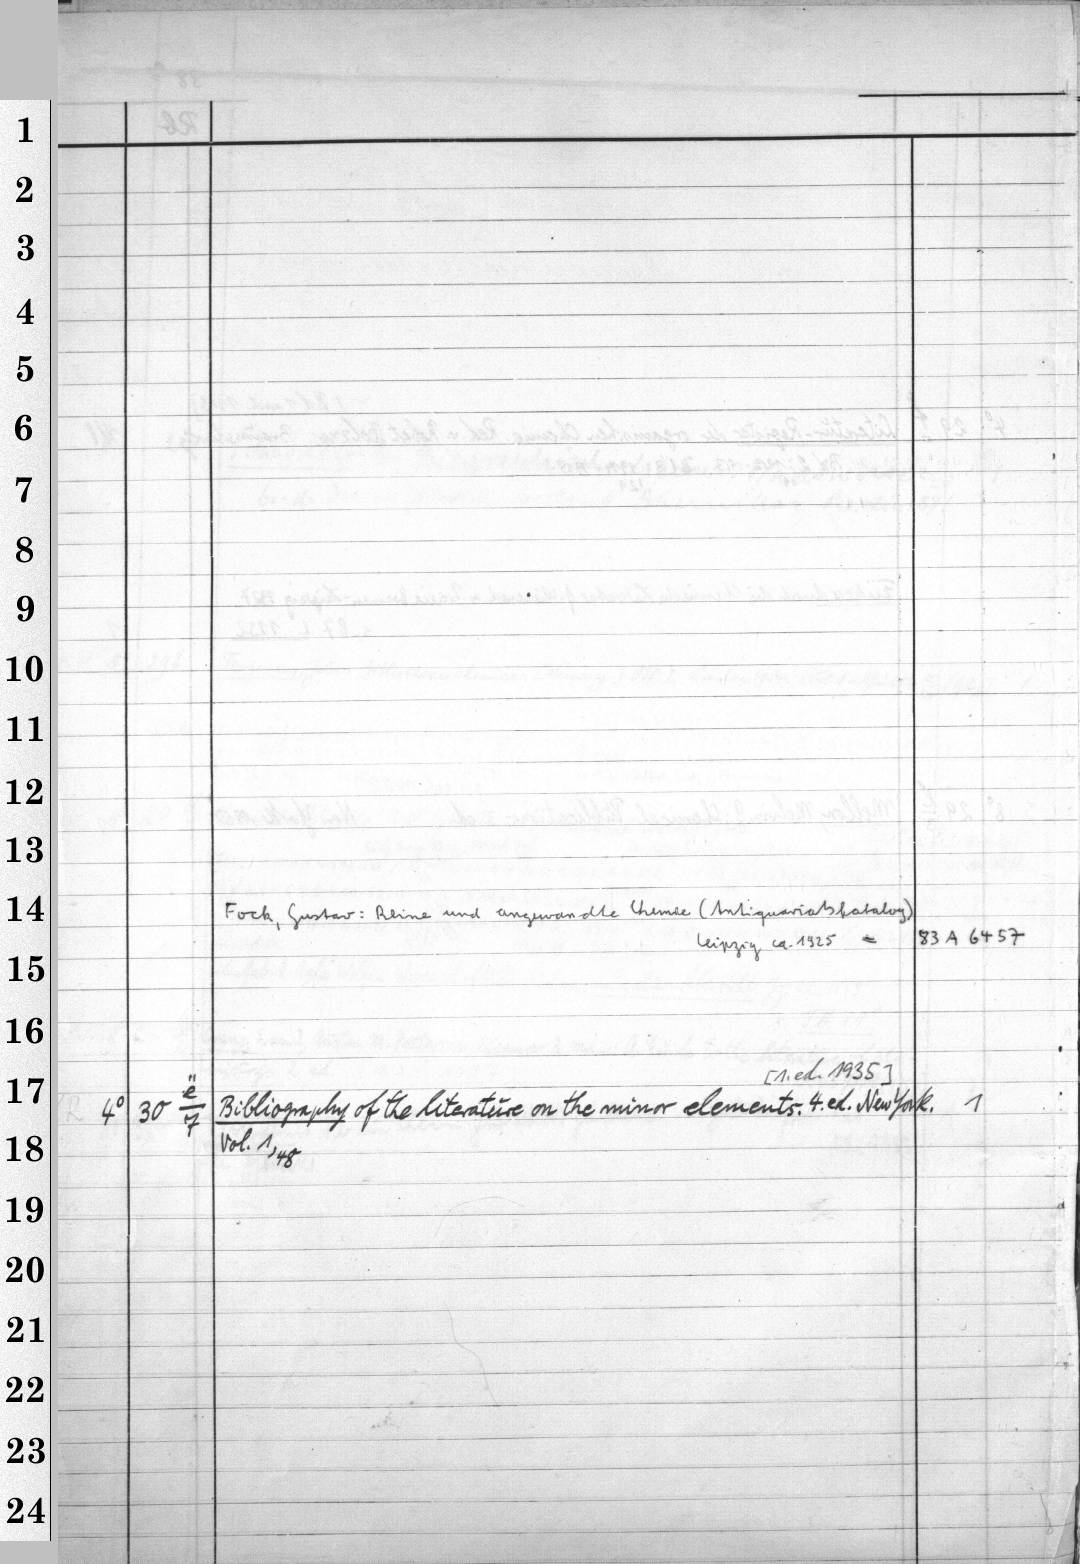 1
2
3
4
5
6
7
8
9
10
11
12
13
14
Fock, Gustav: Reine und angewandte Chemie (Antiquariatskatalog)
Leipzig ca. 1925 = 83 A 6457
15
16
[1. ed. 1935]
17
4° 30 ë/7 Bibliography of the literature on the minor elements. 4. ed. New York. 1
18
Vol. 1,48
19
20
21
22
23
24